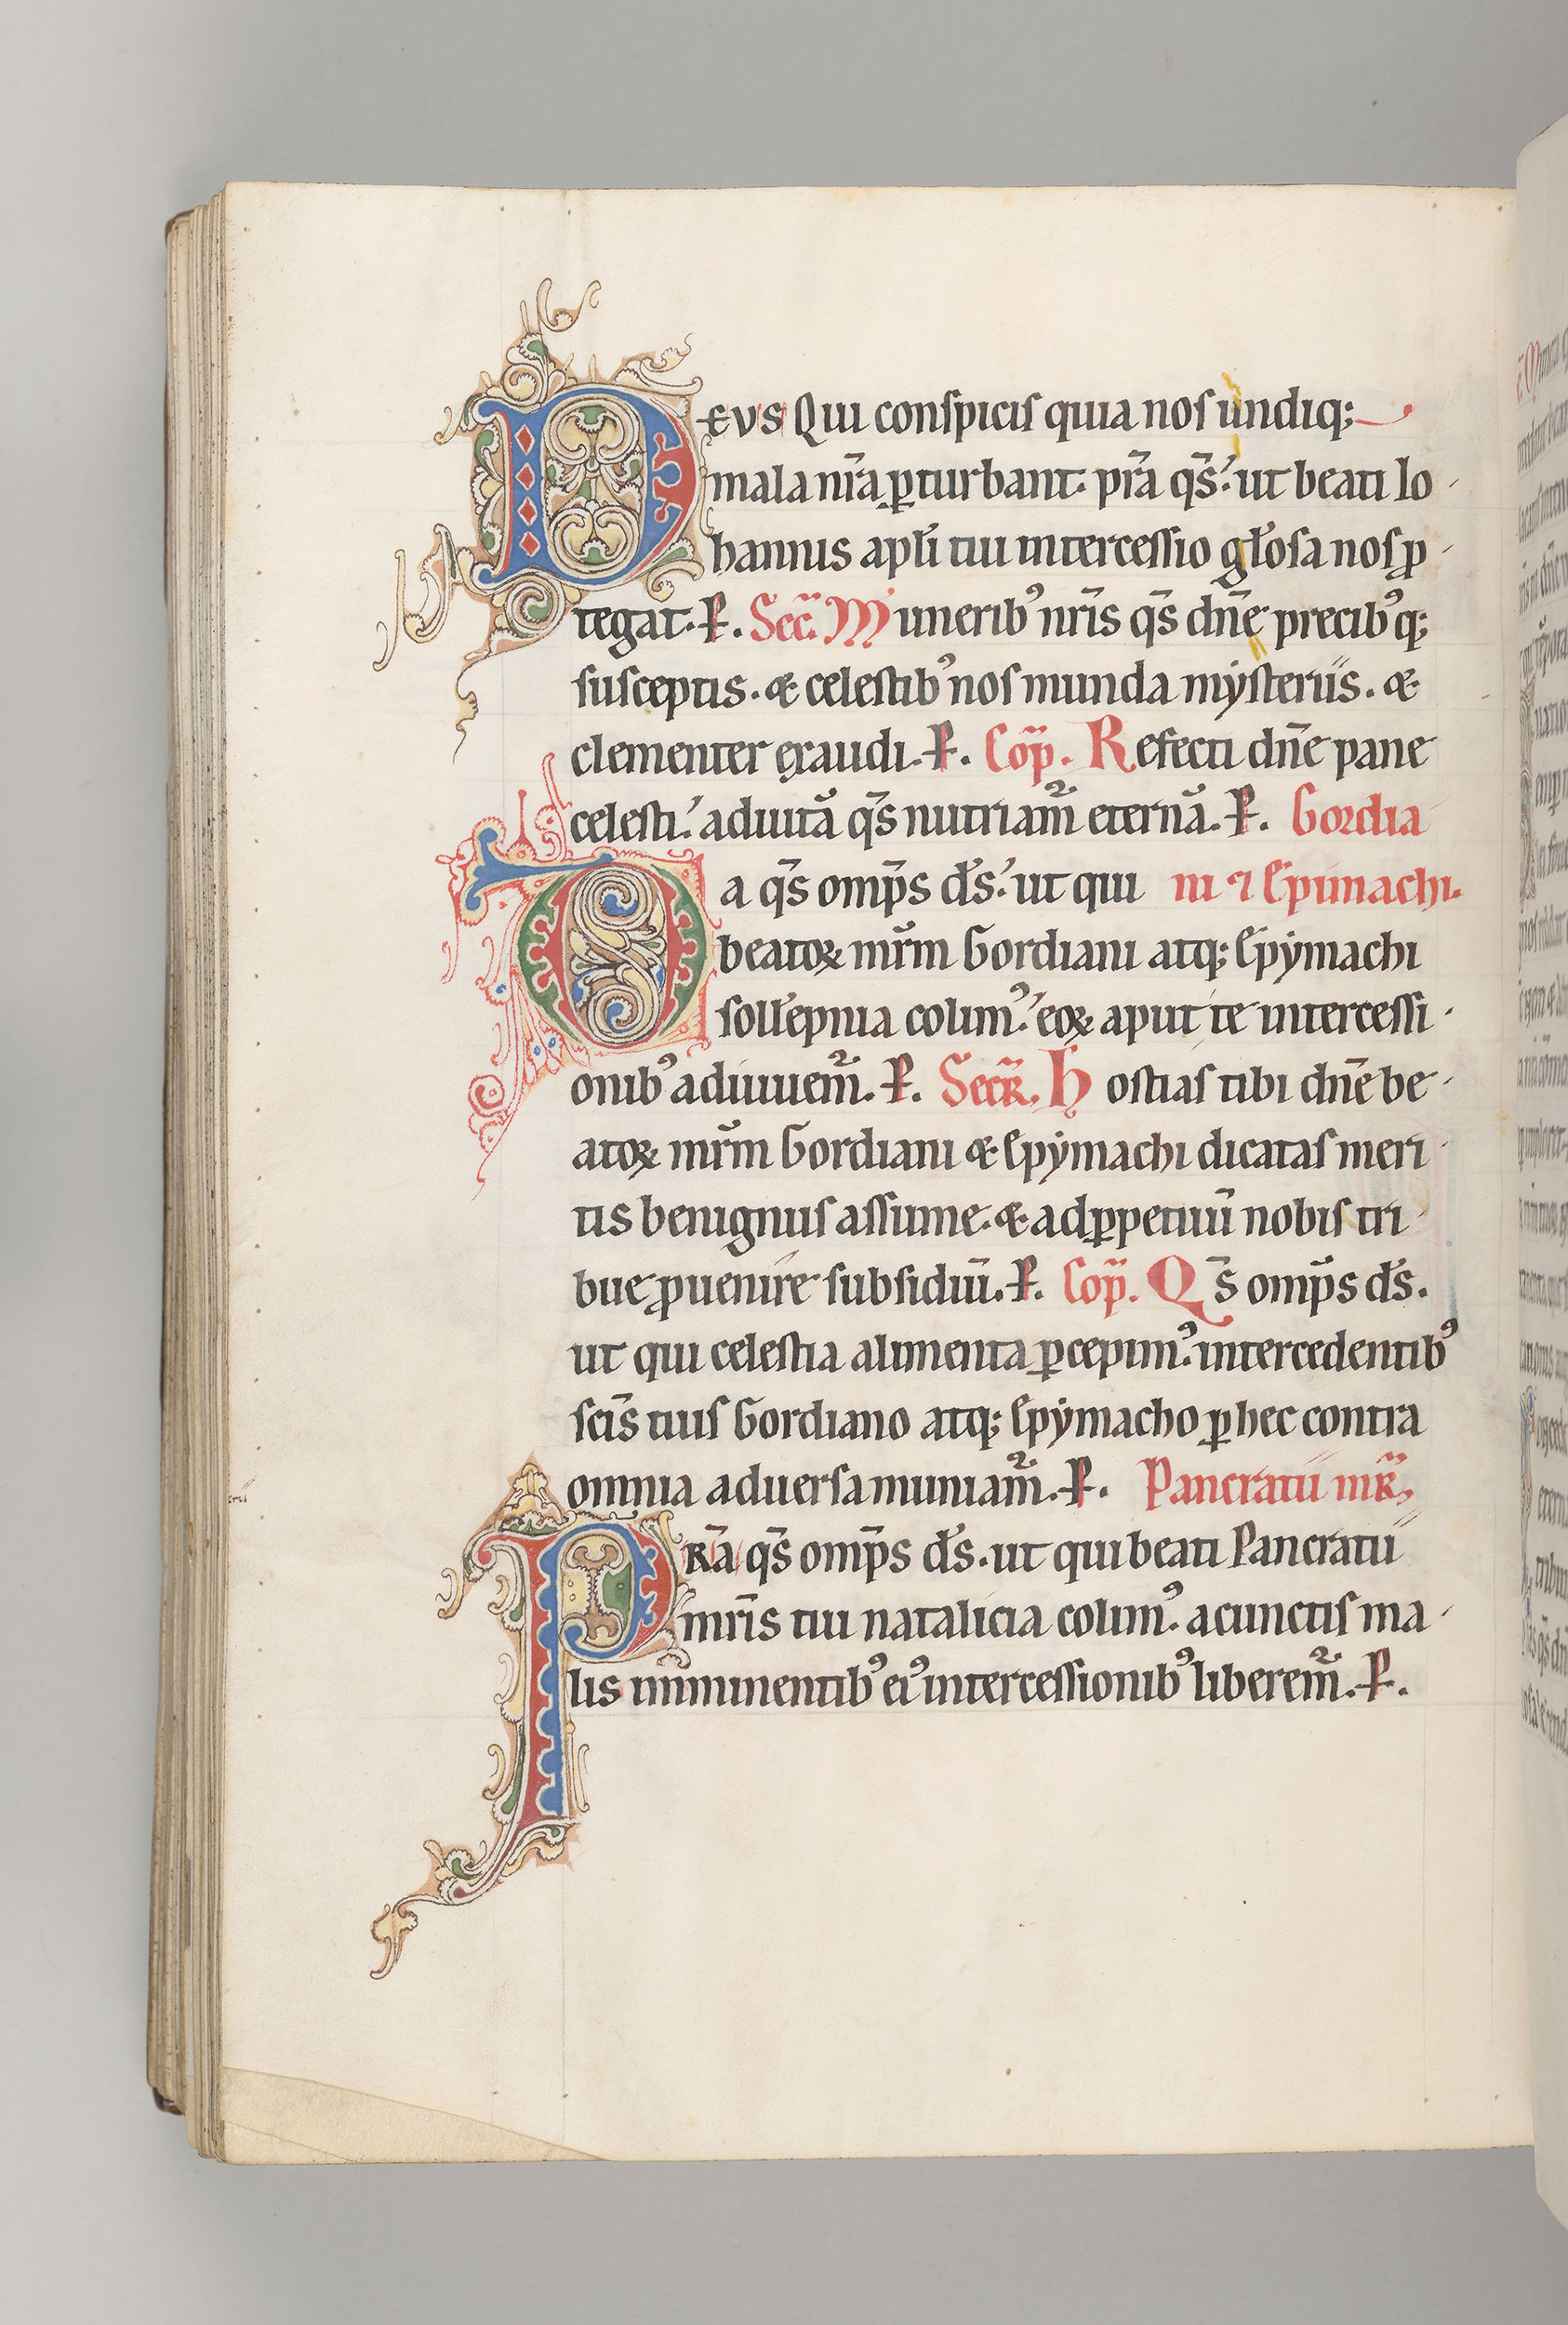 DEVS Qui conspicis quia nos undiq;
mala nr̄a ꝑturbant. pr̄a qs̄. ut beati Io
hannis apl̄i tui intercessio gl̄osa nos ꝓ
tegat. P. Sec̄. Munerib᾽ nr̄is qs̄ dn̄e precib᾽q;
susceptis. & celestib᾽ nos munda mẏsteriis. &
clementer exaudi. P. Cop̄. Refecti dn̄e pane
celesti. ad uitā qs̄ nutriam̄ eternā. P. Gordia
Da qs̄ omp̄s d̄s. ut qui ni ⁊ Epimachi.
beatoꝝ mr̄m Gordiani atq; Epẏmachi
soll'epnia colim᾽. eoꝝ aput te intercessi
onib᾽ adiuuem̄. P. Secr̄. Hostias tibi dn̄e be
atoꝝ mr̄m Gordiani & Epẏmachi dicatas meri
tis benignus assume. & ad ꝑpetuū nobis tri
bue ꝓuenire subsidiū. P. Cop̄. Qs̄ omp̄s d̄s.
ut qui celestia alimenta ꝑcepim᾽. intercedentib᾽
scīs tuis Gordiano atq; Epẏmacho ꝑ hec contra
omnia aduersa muniam̄. P. Pancratii mr̄.
PRā qs̄ omp̄s d̄s. ut qui beati Pancratii
mr̄is tui natalicia colim᾽. a cunctis ma
lis imminentib᾽ ei᾽ intercessionib᾽ liberem̄. P.